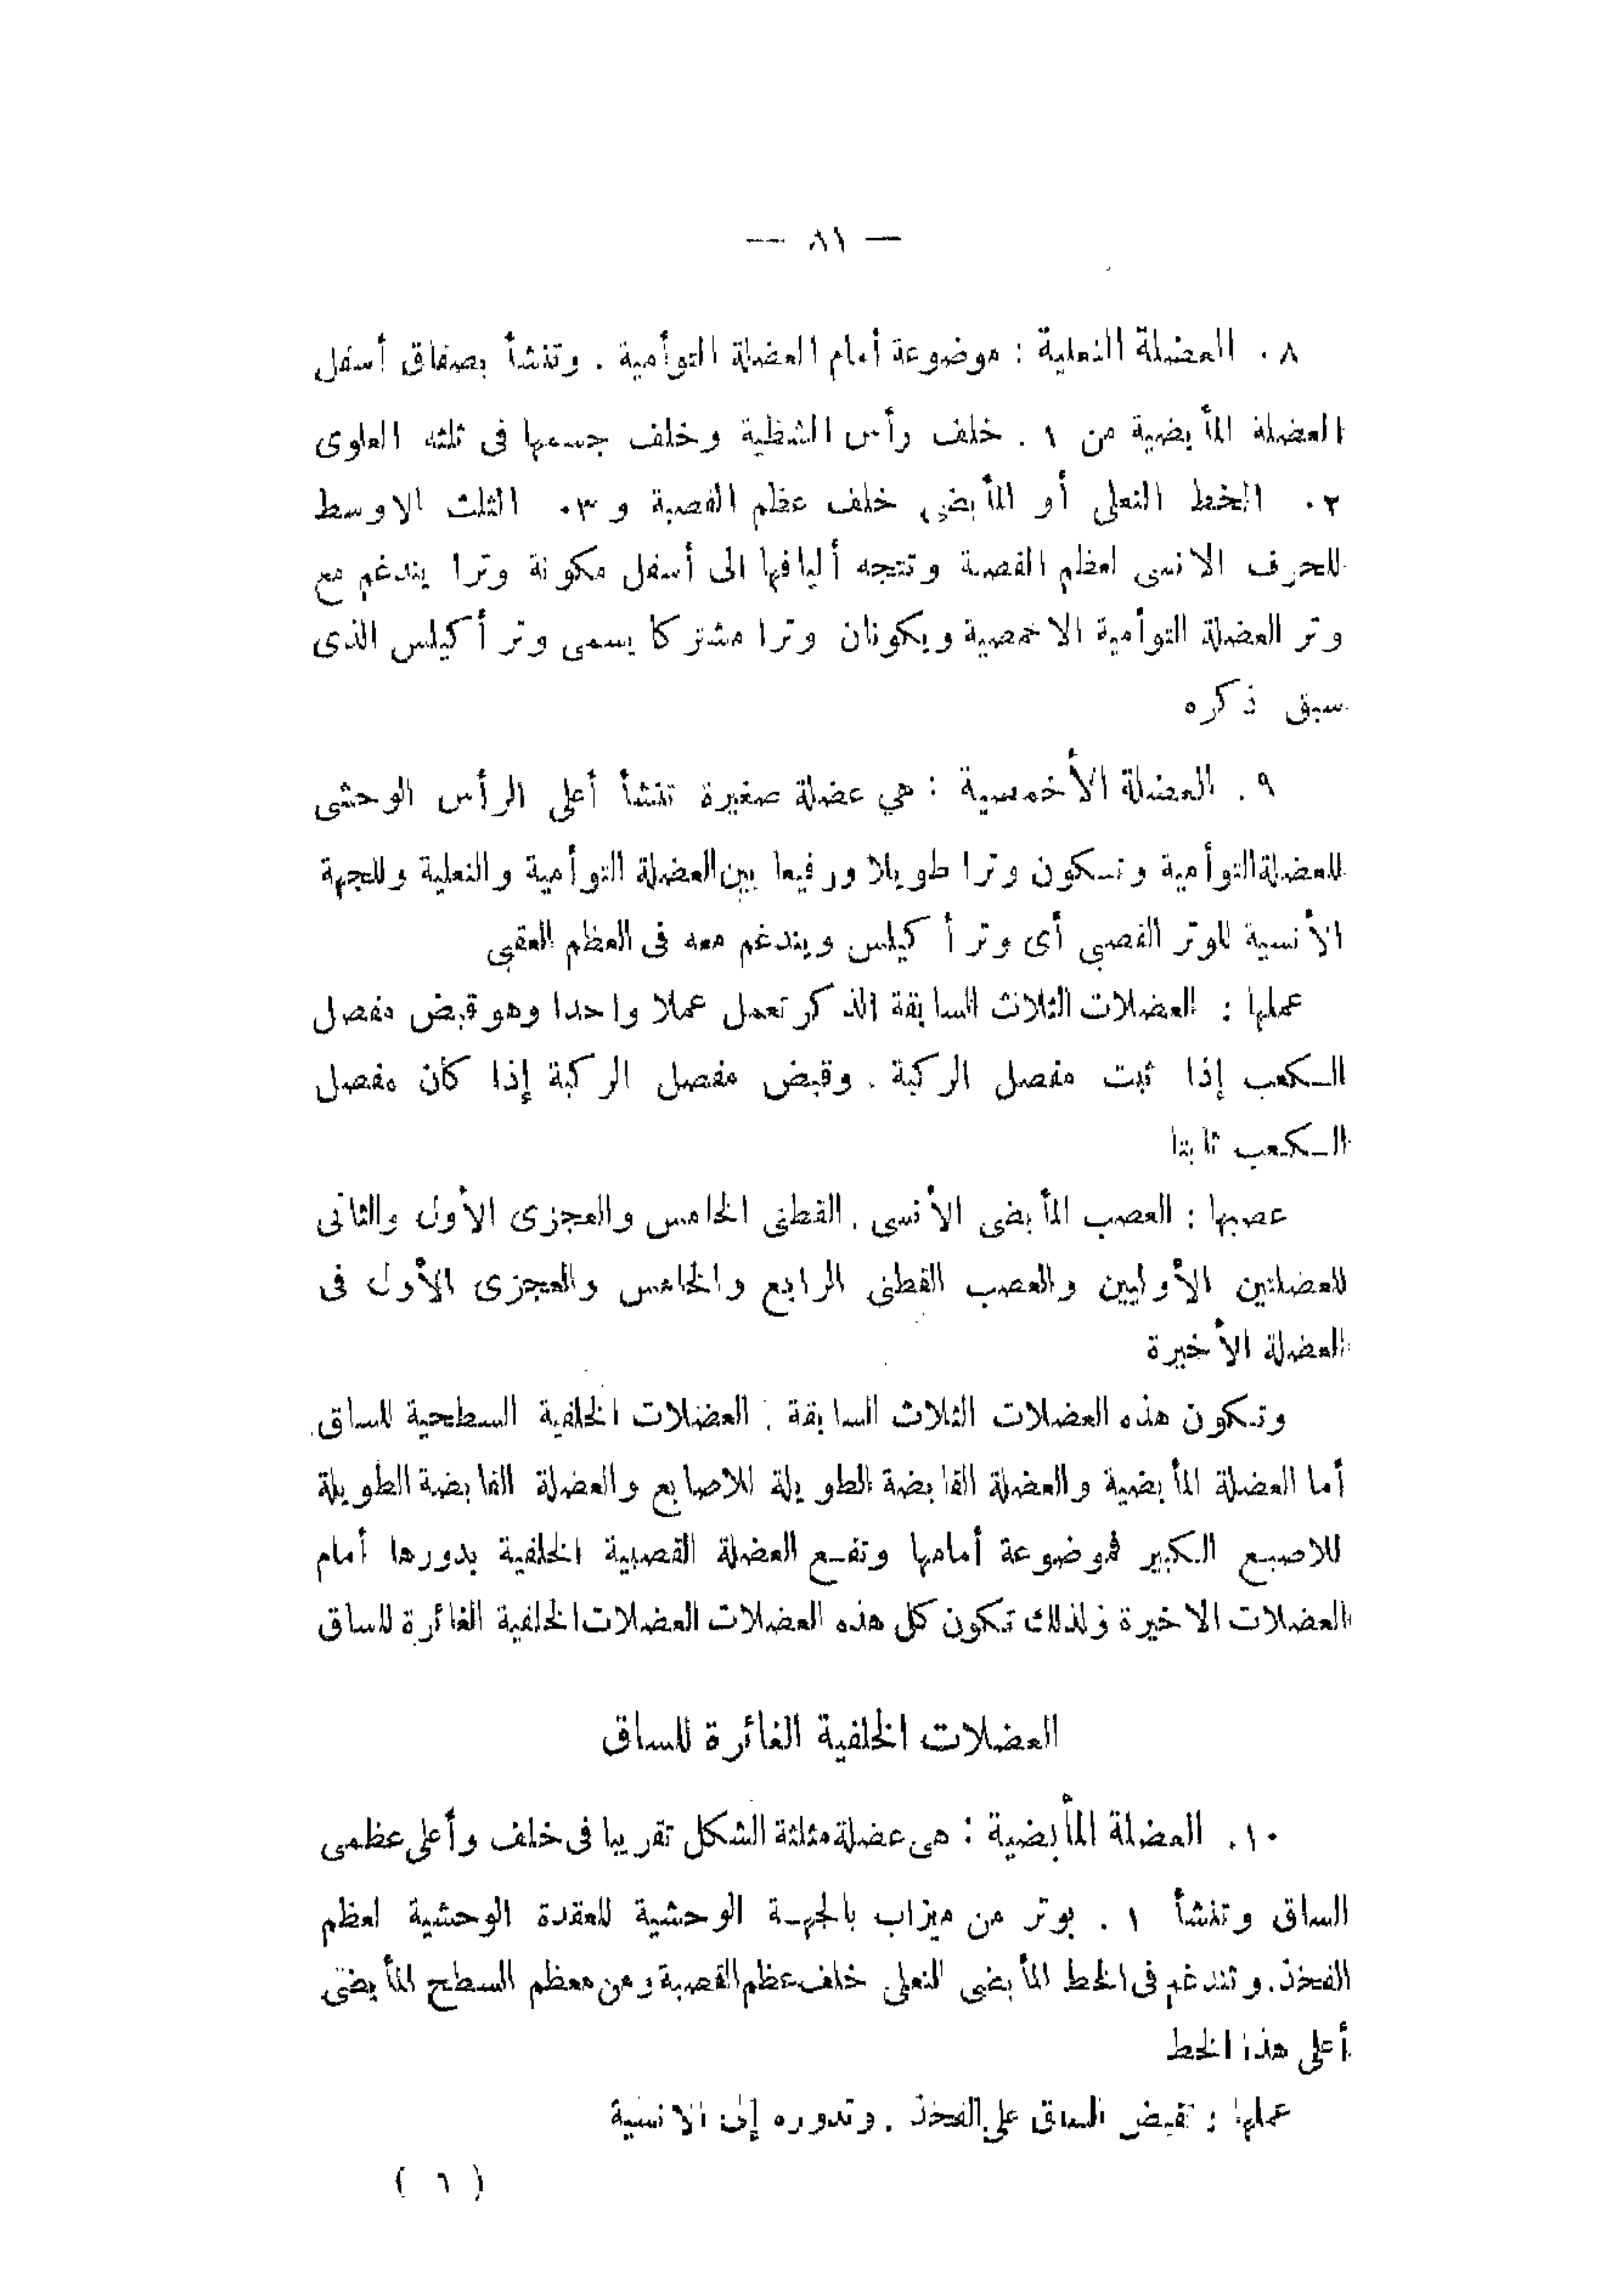 — ٨١ —
٨. العضلة النعلية : موضوعة أمام العضلة التوأمية . وتنشأ بصفاق أسفل
العضلة المأبضية من ١ . خلف رأس الشظية وخلف جسمها فى ثلثه العلوى
٢. الخط النعلى أو المأبضى خلف عظم القصبة و ٣. الثلث الاوسط
للحرف الانسى لعظم القصبة وتتجه أليافها الى أسفل مكونة وترا يندغم مع
وتر العضلة التوأمية الاخمصية ويكونان وترا مشتركا يسمى وتر أكيلس الذى
سبق ذكره
٩. العضلة الأخمسية : هي عضلة صغيرة تنشأ أعلى الرأس الوحشى
للعضلة التوأمية وتكون وترا طويلا ورفيعا بين العضلة التوأمية والنعلية وللجهة
الأنسية للوتر القصبي أى وتر أكيلس ويندغم معه فى العظم العقبى
عملها : العضلات الثلاث السابقة الذكر تعمل عملا واحدا وهو قبض مفصل
الكعب إذا ثبت مفصل الركبة . وقبض مفصل الركبة إذا كان مفصل
الكعب ثابتا
عصبها : العصب المأبضى الأنسى . القطنى الخامس والعجزى الأول والثانى
للعضلتين الأوليين والعصب القطنى الرابع والخامس والعجزى الأول فى
العضلة الأخيرة
وتكون هذه العضلات الثلاث السابقة : العضلات الخلفية السطحية للساق.
أما العضلة المأبضية والعضلة القابضة الطويلة للاصابع والعضلة القابضة الطويلة
للاصبع الكبير فموضوعة أمامها وتقع العضلة القصبية الخلفية بدورها أمام
العضلات الاخيرة ولذلك تكون كل هذه العضلات العضلات الخلفية الغائرة للساق
العضلات الخلفية الغائرة للساق
١٠. العضلة المأبضية : هى عضلة مثلثة الشكل تقريبا فى خلف وأعلى عظمى
الساق وتنشأ ١ . بوتر من ميزاب بالجهة الوحشية للعقدة الوحشية لعظم
الفخذ. وتندغم فى الخط المأبضى النعلى خلف عظم القصبة ومن معظم السطح المأبضى
أعلى هذا الخط
عملها : تقبض الساق على الفخذ . وتدوره إلى الانسية
( ٦ )